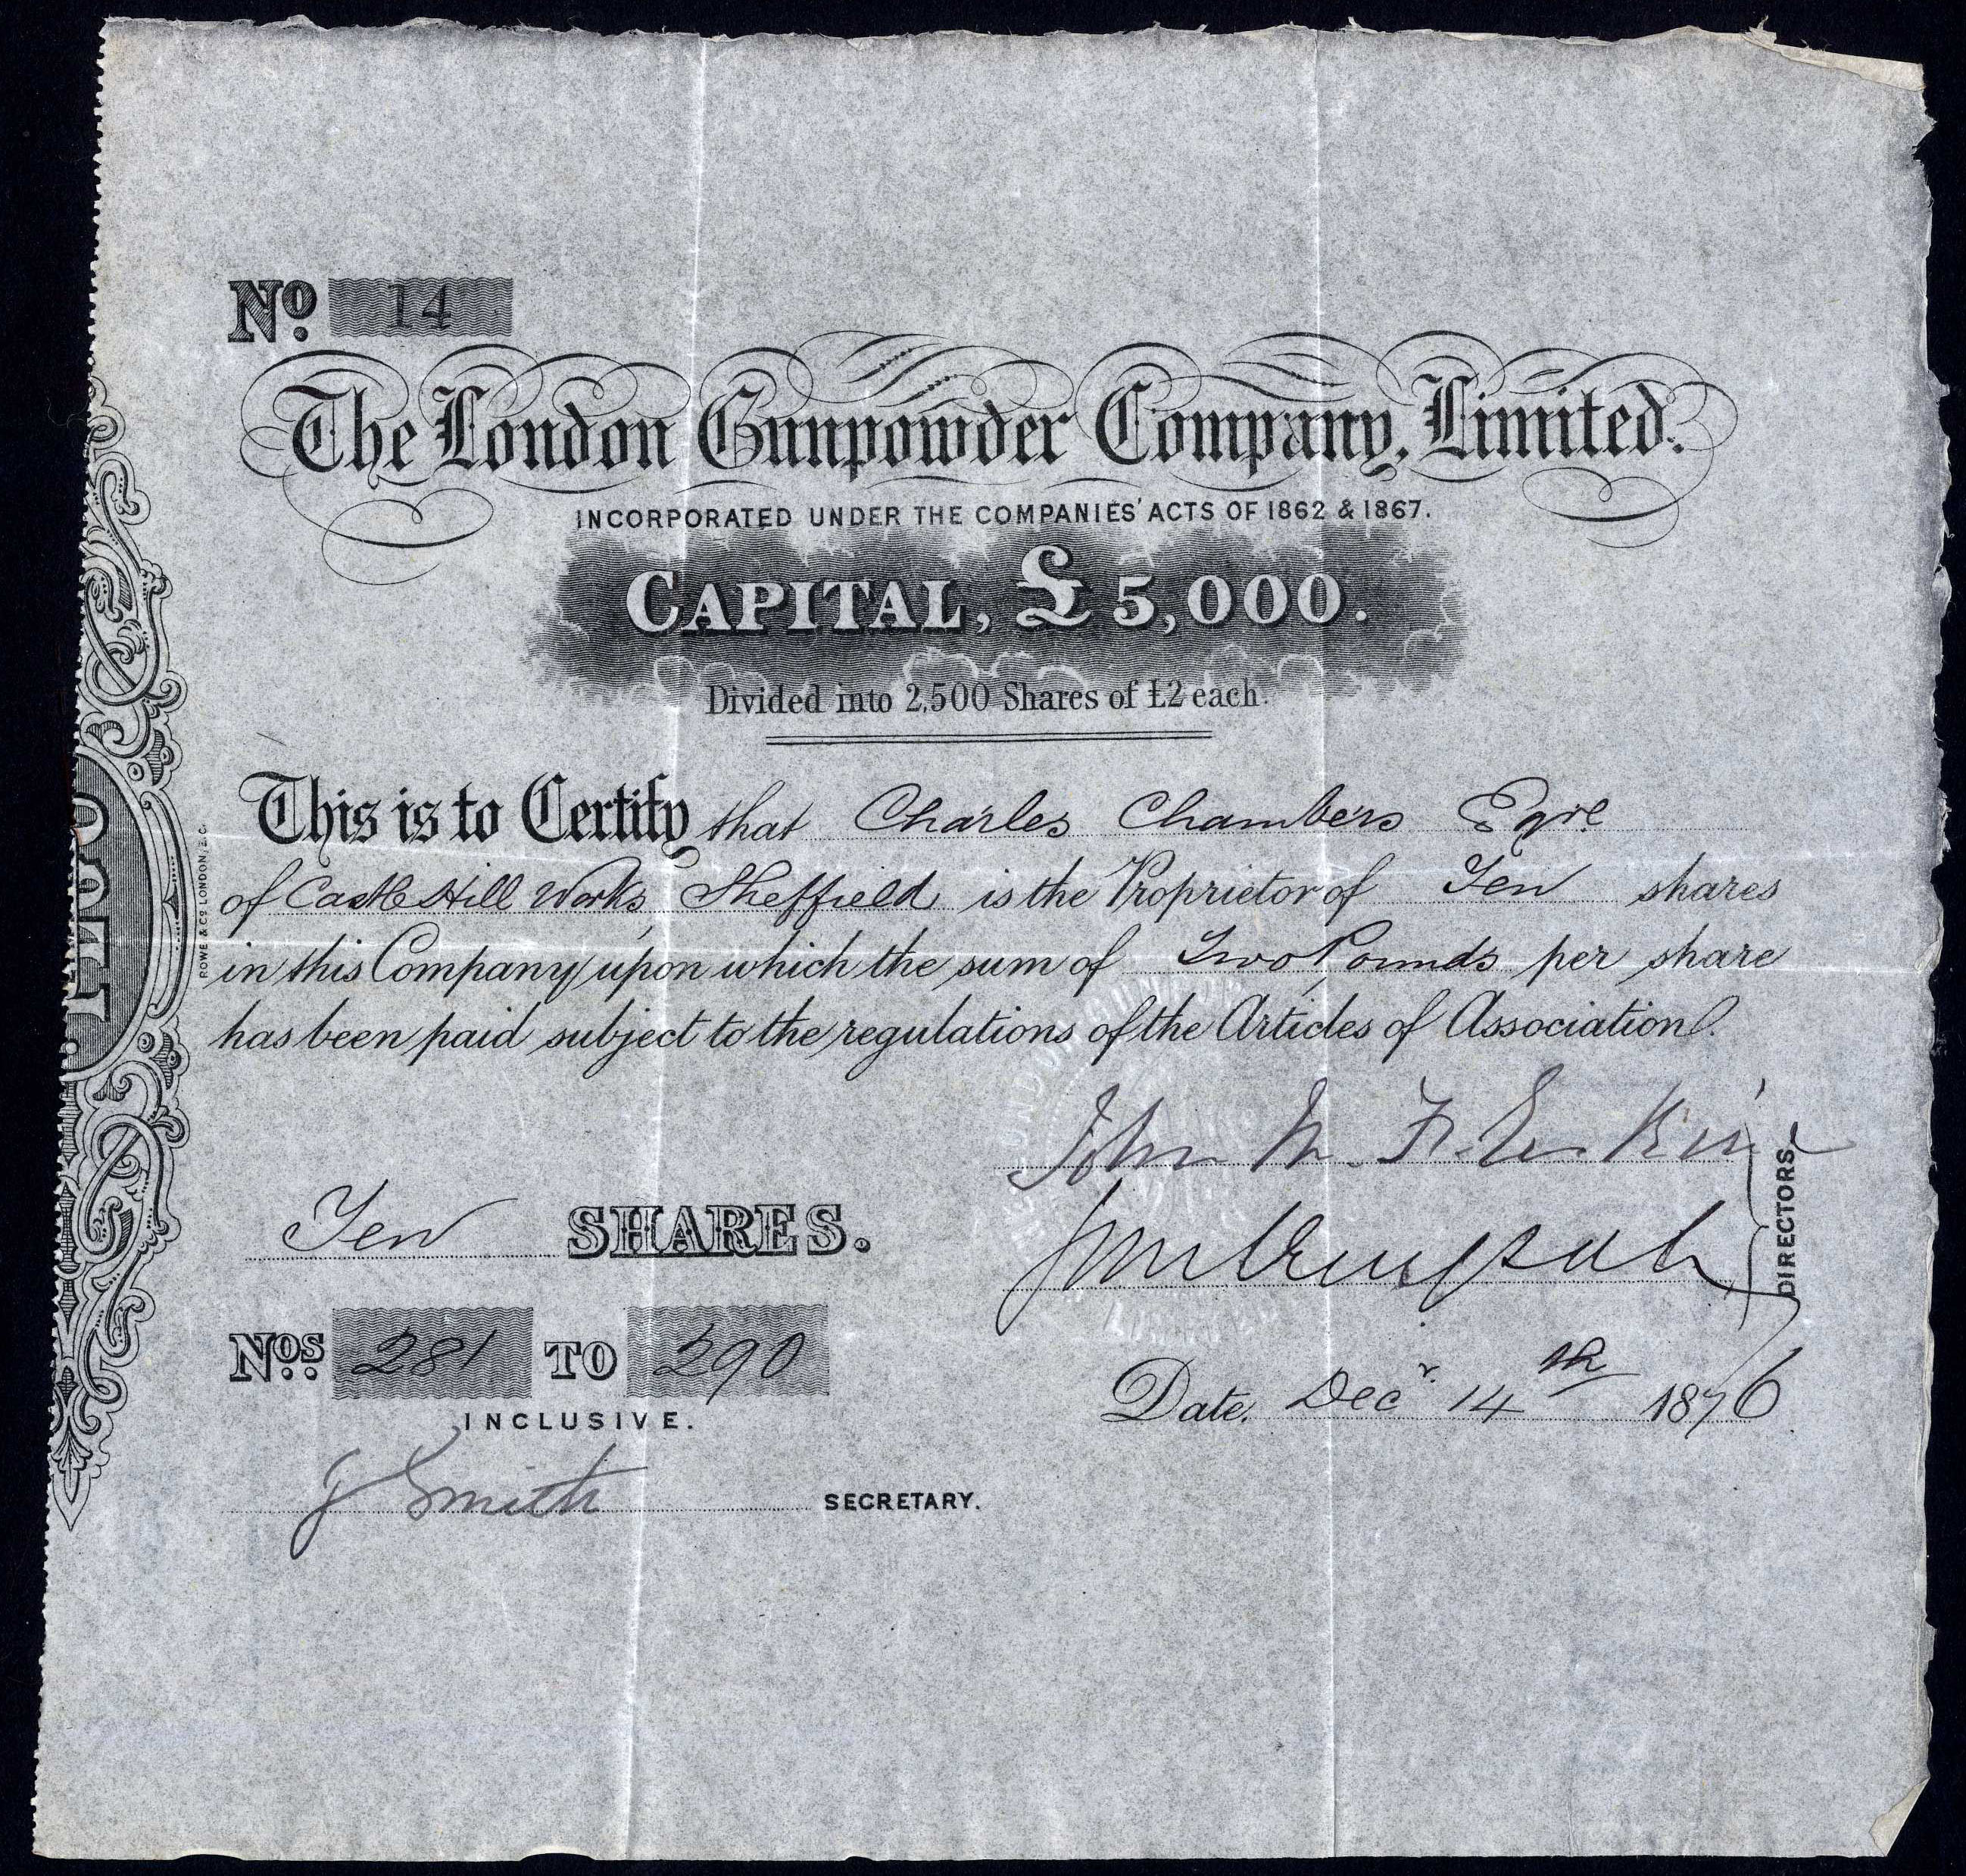 No. 14
The London Gunpowder Company, Limited.
INCORPORATED UNDER THE COMPANIES' ACTS OF 1862 & 1867.
CAPITAL, £5,000.
Divided into 2,500 Shares of £2 each.
This is to Certify that Charles Chambers Esqre
of Castle Hill Works, Sheffield is the Proprietor of Ten shares
in this Company upon which the sum of Two Pounds per share
has been paid subject to the regulations of the Articles of Association.
John
DIRECTORS.
Ten SHARES.
Nos. 281 TO 290
INCLUSIVE.
Date, Decr. 14th 1876
J Smith SECRETARY.
ROWE & Co. LONDON, E.C.
LTD
LONDON GUNPOW
LIMITED